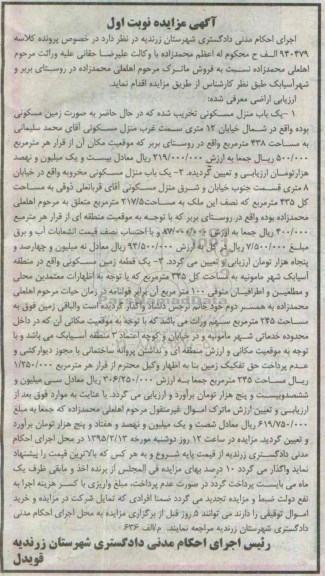 آگهی مزایده نوبت اول
اجرای احکام مدنی دادگستری شهرستان زرندیه در نظر دارد در خصوص پرونده کلاسه
۹۳۰۴۷۹ الف ح محکوم له اعظم محمدزاده با وکالت علیرضا حقانی علیه وراثت مرحوم
اهلعلی محمدزاده نسبت به فروش ماترک مرحوم اهلعلی محمدزاده در روستای بربر و
شهرآسیابک طبق نظر کارشناس از طریق مزایده اقدام نماید.
ارزیابی اراضی معرفی شده:
۱-یک باب منزل مسکونی تخریب شده که در حال حاضر به صورت زمین مسکونی
بوده واقع در شمال خیابان ۱۲ متری سمت غرب منزل مسکونی آقای محمد سلیمانی
به مساحت ۴۳۸ مترمربع واقع در روستای بربر که موقعیت مکان آن از قرار هر مترمربع
۵۰۰/۰۰۰ ریال جمعا به ارزش ۲۱۹/۰۰۰/۰۰۰ ریال معادل بیست و یک میلیون و نهصد
هزارتومان ارزیابی و تعیین گردیده. ۲- یک باب منزل مسکونی مخروبه واقع در خیابان
۸ متری قسمت جنوب خیابان و شرق منزل مسکونی آقای قربانعلی ذوقی به مساحت
کل ۴۳۵ مترمربع که نصف این ملک به مساحت ۲۱۷/۵ مترمربع متعلق به مرحوم اهلعلی
محمدزاده بوده واقع در روستای بربر که با توجه به موقعیت منطقه ای از قرار هر مترمربع
۴۰۰/۰۰۰ ریال جمعا به ارزش ۸۷/۰۰۰/۰۰۰ و با احتساب نصف قیمت انشعابات آب و برق
مبلغ ۷/۵۰۰/۰۰۰ ریال در کل به ارزش ۹۴/۵۰۰/۰۰۰ ریال معادل نه میلیون و چهارصد و
پنجاه هزار تومان ارزیابی و تعیین می گردد. ۳- یک قطعه زمین مسکونی واقع در منطقه
آسیابک شهر مامونیه به مساحت کل ۳۴۵ مترمربع که با توجه به اظهارات معتمدین محلی
و مطلعین و اطرافیان متوفی ۱۰۰ متر مربع آن برابر قولنامه در زمان حیات مرحوم اهلعلی
محمدزاده به همسر دوم خود خانم نرجس دلشاد واگذار گردیده است والباقی زمین فوق به
مساحت ۲۴۵ مترمربع سهم وراث می باشد که با توجه به موقعیت مکانی آن که در داخل
محدوده خدماتی شهر مامونیه و در خیابان و کوچه اعتماد ۲ منطقه آسیابک می باشد و با
توجه به موقعیت مکانی و ارزش منطقه ای و نداشتن پروانه ساختمانی یا مجوز دیوارکشی و
عدم پرداخت حق تفکیک زمین بنا به اظهار وکیل محترم از قرار هر مترمربع ۱/۲۵۰/۰۰۰
ریال مساحت ۲۴۵ مترمربع جمعا به ارزش ۳۰۶/۲۵۰/۰۰۰ ریال معادل سی میلیون و
ششصدوبیست و پنج هزار تومان برآورد و ارزیابی می گردد. با عنایت به موارد فوق بعد از
ارزیابی و تعیین ارزش ماترک اموال غیرمنقول مرحوم اهلعلی محمدزاده که جمعا به مبلغ
۶۱۹/۷۵۰/۰۰۰ ریال معادل شصت و یک میلیون و نهصد و هفتاد و پنج هزار تومان برآورد
و تعیین گردید. مزایده در ساعت ۱۲ روز دوشنبه مورخه ۱۳۹۵/۲/۱۳ در محل اجرای احکام
مدنی دادگستری زرندیه از قیمت پایه شروع و به هر کس که بالاترین قیمت را پیشنهاد
نماید واگذار می گردد ۱۰ درصد بهای مزایده فی المجلس از برنده اخذ و مابقی ظرف یک
ماه می بایست پرداخت گردد در صورت عدم پرداخت، مبلغ واریزی با کسر هزینه اجرا به
نفع دولت ضبط و مزایده تجدید می گردد ضمنا افرادی که تمایل شرکت در مزایده و خرید
اموال توقیفی را دارند می توانند ۵ روز قبل از برگزاری مزایده به محل اجرای احکام مدنی
دادگستری شهرستان زرندیه مراجعه نمایند. م/الف ۶۳۶
رئیس اجرای احکام مدنی دادگستری شهرستان زرندیه
قویدل